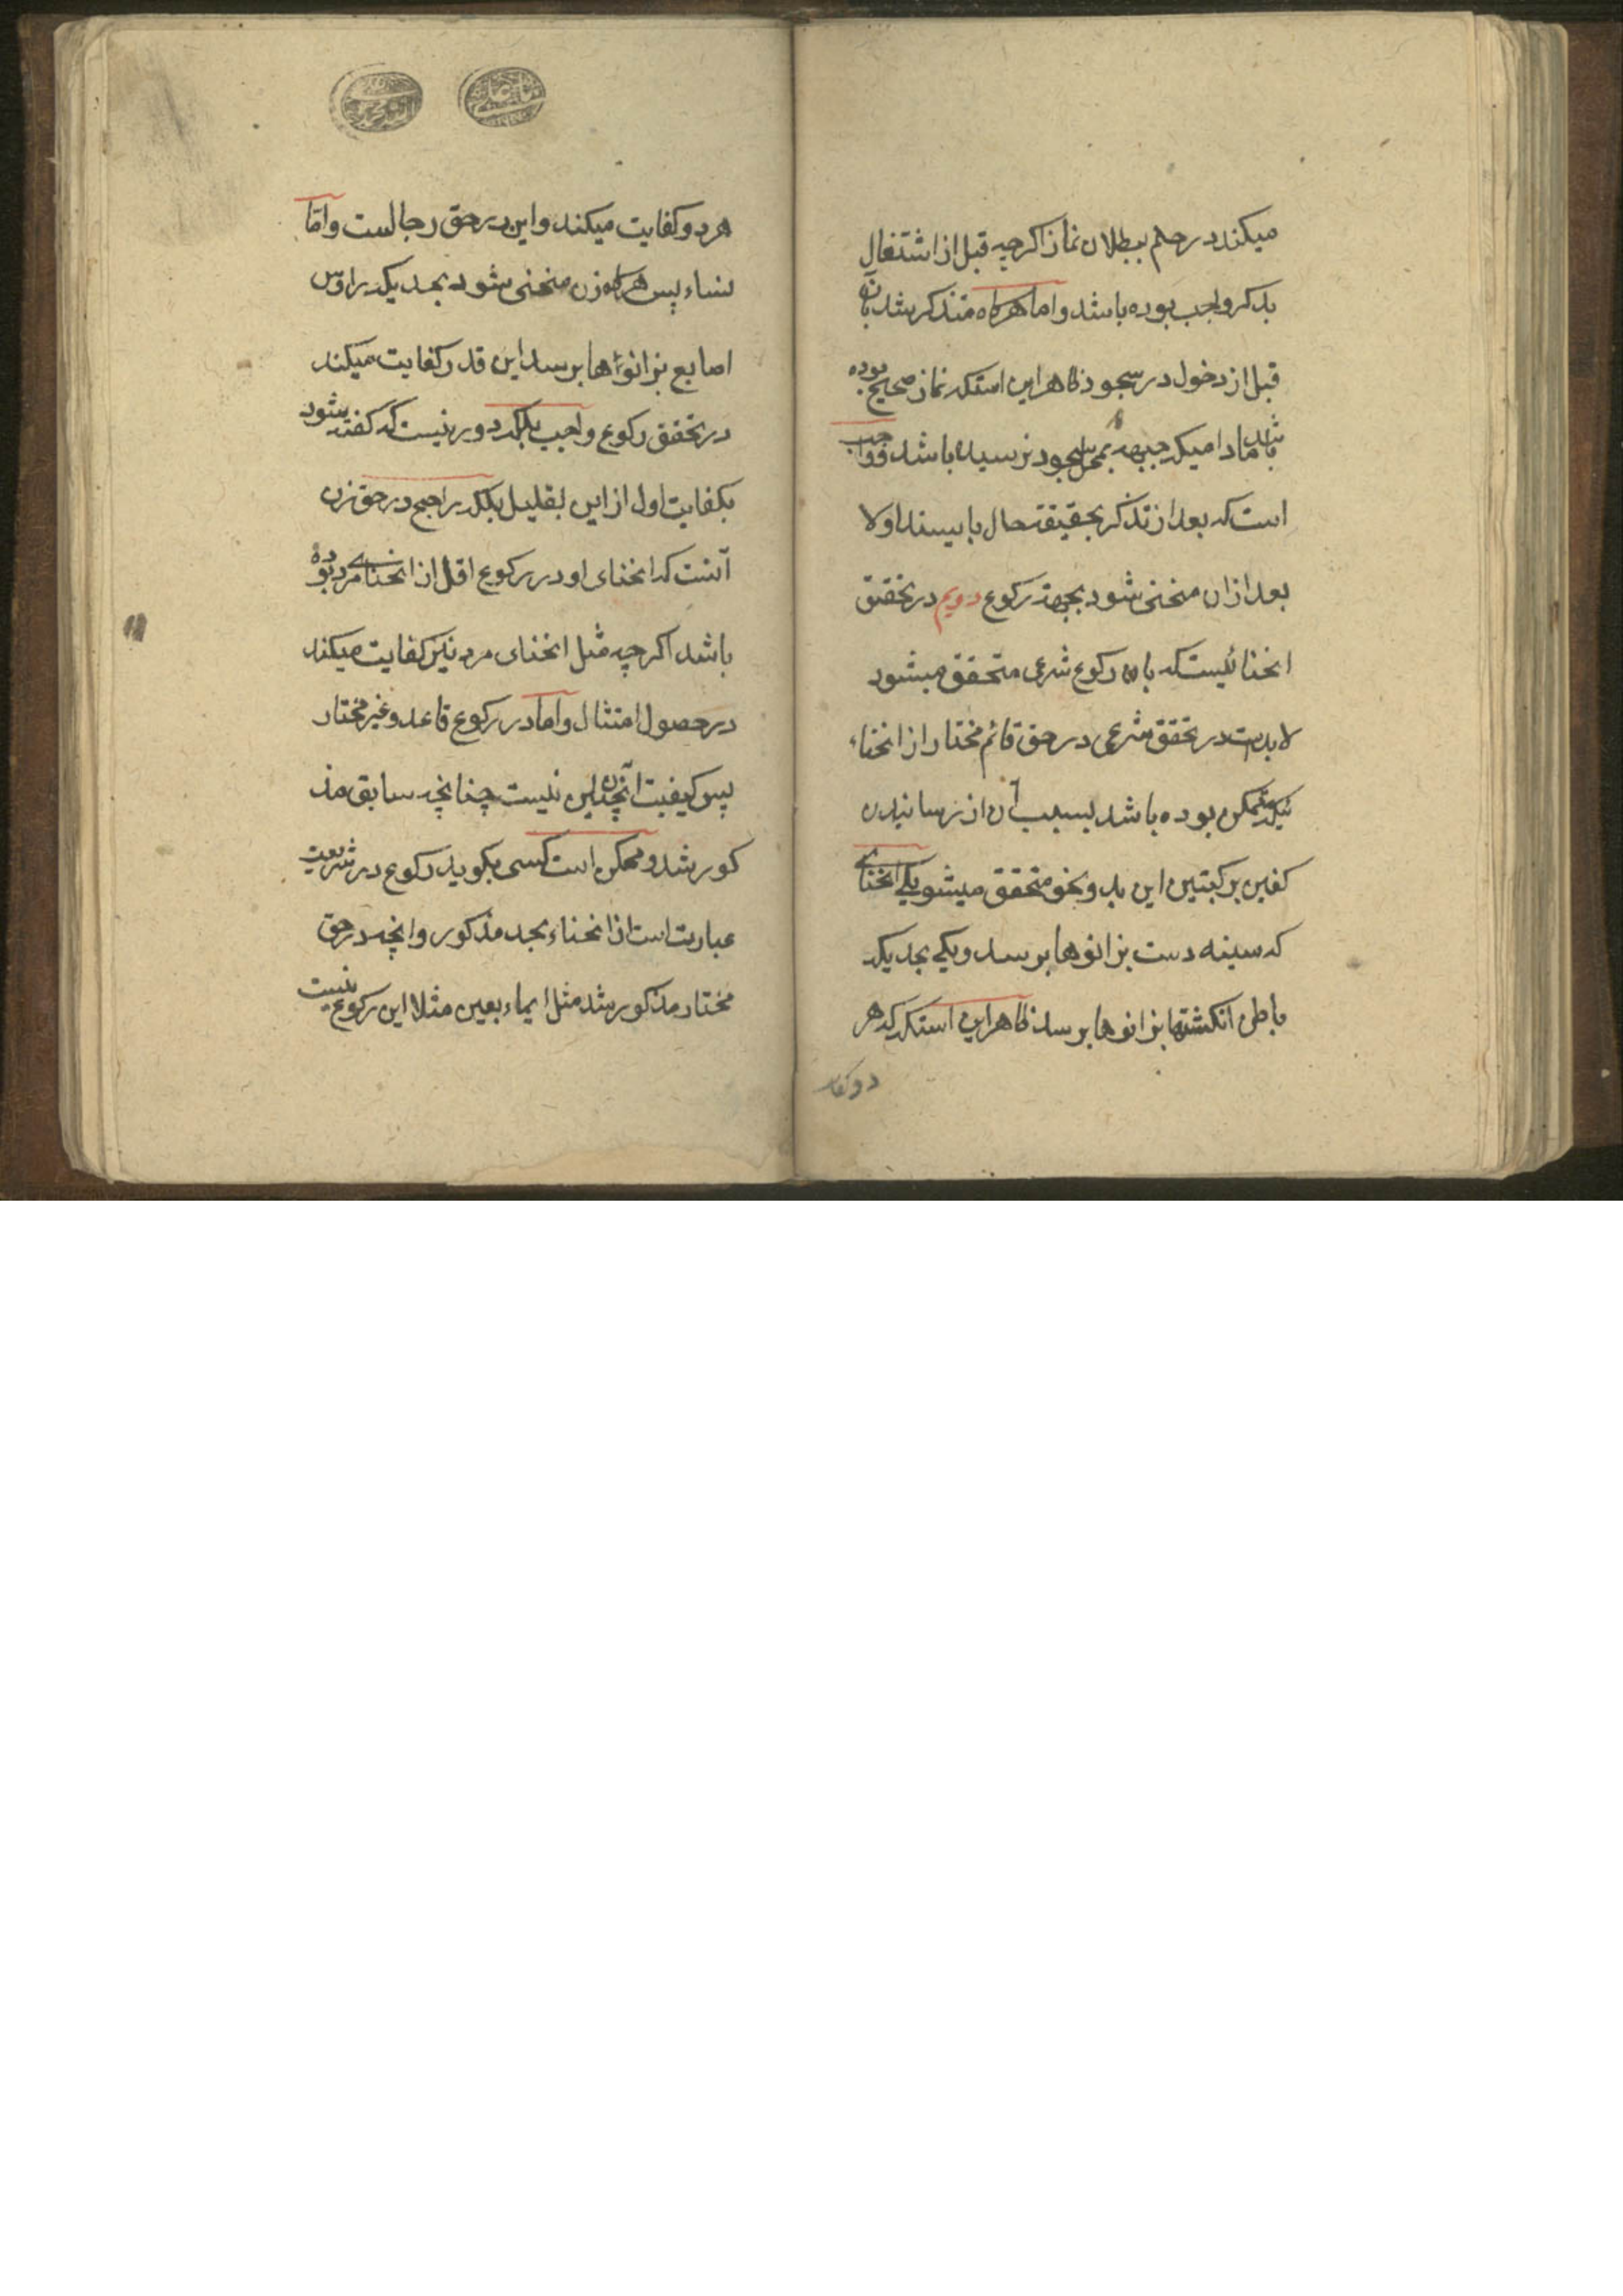 میکند در حکم ببطلان نماز اکرچه قبل از اشتغال
بذکر واجب بوده باشد و اما هرکاه متذکر شد بآن
قبل از دخول در سجود ظاهر این استکه نماز صحیح بوده
باشد مادامیکه جبهه بمحل سجود نرسیده باشد و واجب
است که بعد از تذکر بحقیقت حال بایستد اولا
بعد از ان منحنی شود بجهة رکوع دویم در تحقیق
انحنائیست که بان رکوع شرعی متحقق میشود
لابدست در تحقق شرعی در حق قائم مختار از انحناء
متمکن بوده باشد بسبب آن از رسانیدن
کفین برکبتین این بدو نحو متحقق میشود یکی انحنای
که سینه دست بزانوها برسد و یکی بحدیکه
باطن انکشتها بزانوها برسد ظاهر این استکه که هر
دو کفا
هر دو کفایت میکند و این در حق رجالست و امّا
نساء پس هرکاه زن منحنی شود بحدیکه رؤس
اصابع بزانوها برسد این قدر کفایت میکند
در تحقق رکوع واجب بلکه دور نیست که کفته شود
بکفایت اول از این بقلیل بلکه راجح در حق زن
آنست که انحنای او در رکوع اقل از انحنای مرد بوده
باشد اکرچه مثل انحنای مرد نیز کفایت میکند
در حصول امتثال و اما در رکوع قاعد و غیر مختار
پس کیفیت آنچنان این نیست چنانچه سابق مذ
کور شد و ممکن است کسی بکوید رکوع در شریعت
عبارت است از انحناء بحد مذکور و انچه در حق
مختار مذکور شد مثل ایماء بعین مثلا این رکوع نیست